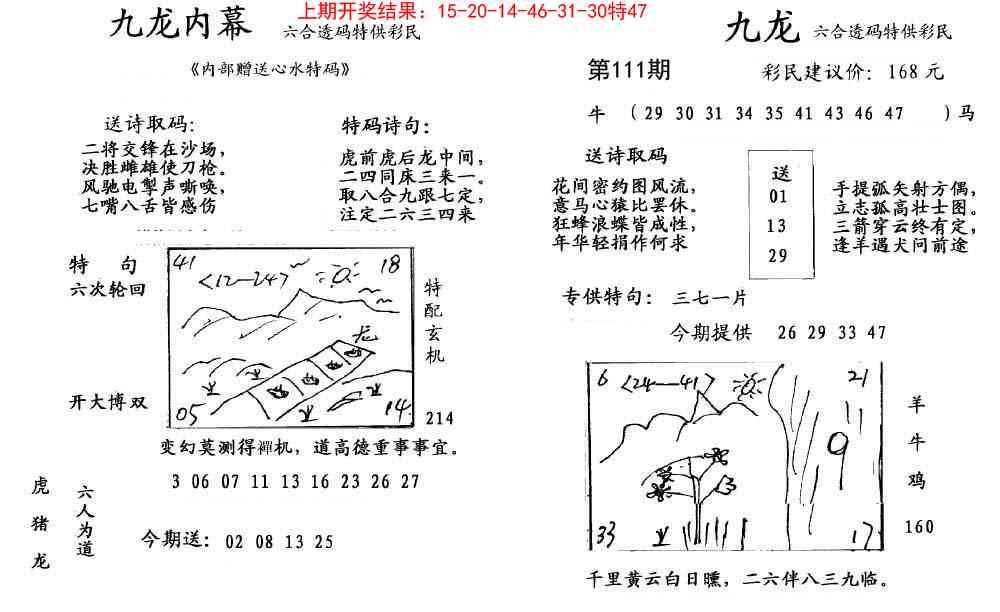 上期开奖结果：15-20-14-46-31-30特47
九龙内幕 六合透码特供彩民
《内部赠送心水特码》
送诗取码：
二将交锋在沙场，
决胜雌雄使刀枪。
风驰电掣声嘶唤，
七嘴八舌皆感伤
特码诗句：
虎前虎后龙中间，
二四同床三来一。
取八合九跟七定，
注定二六三四来
特 句
六次轮回
开大博双
41
18
<12—24>
龙
05
14
特配玄机
214
变幻莫测得禪机，道高德重事事宜。
3 06 07 11 13 16 23 26 27
虎
猪
龙
六人为道
今期送：02 08 13 25
九龙 六合透码特供彩民
第111期 彩民建议价：168元
牛 （29 30 31 34 35 41 43 46 47 ）马
送诗取码
花间密约图风流，
意马心猿比罢休。
狂蜂浪蝶皆成性，
年华轻捐作何求
送
01
13
29
手提弧矢射方偶，
立志孤高壮士图。
三箭穿云终有定，
逢羊遇犬问前途
专供特句：三七一片
今期提供 26 29 33 47
6
<24—41>
21
9
33
17
羊
牛
鸡
160
千里黄云白日曛，二六伴八三九临。